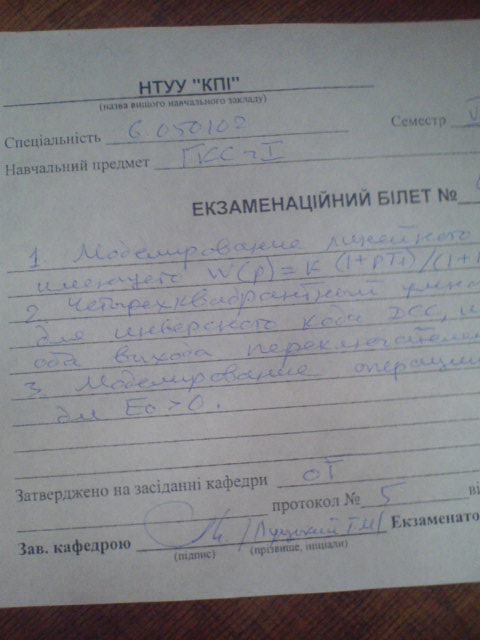 НТУУ "КПІ"
(назва вищого навчального закладу)
Спеціальність 6.050102
Семестр
Навчальний предмет ГКС-I
ЕКЗАМЕНАЦІЙНИЙ БІЛЕТ №
1. Моделирование линейного
имеющего W(p) = K (1+pT1)/(1+
2. Четырехквадрантный
для инверсного кода ДСС,
оба выхода
3. Моделирование операции
для E0>0.
Затверджено на засіданні кафедри ОТ
протокол № 5 ві
Зав. кафедрою /Луцький Г.М/ Екзаменато
(підпис) (прізвище, ініціали)